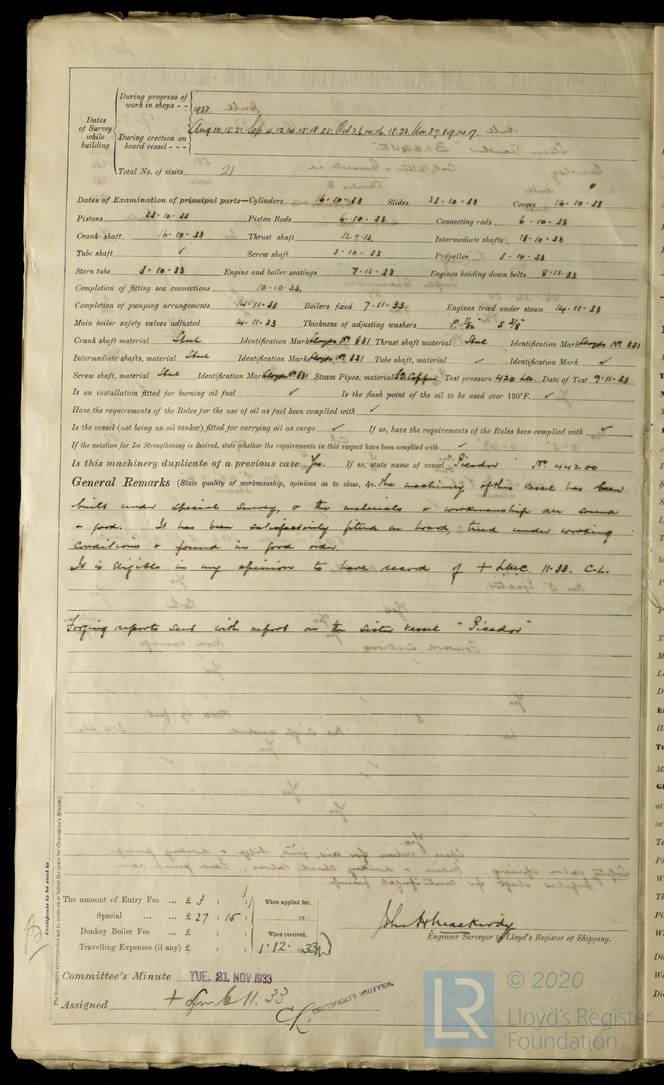 During progress of work in shops - -
1933 Hull
Dates of Survey while building
During erection on board vessel - - -
Aug. 10. 15. 21. Sep. 4. 12. 14. 15. 18. 25. Oct. 3. 6. 10. 16. 18. 23. Nov. 3. 7. 8. 9. 14. 17.
Total No. of visits 21
Dates of Examination of principal parts—Cylinders 16.10.33 Slides 23.10.33 Covers 16.10.33
Pistons 23.10.33 Piston Rods 6.10.33 Connecting rods 6.10.33
Crank shaft 16.10.33 Thrust shaft 12.9.33 Intermediate shafts 18.10.33
Tube shaft ✓ Screw shaft 3.10.33 Propeller 3.10.33
Stern tube 3.10.33 Engine and boiler seatings 7.11.33 Engines holding down bolts 8.11.33
Completion of fitting sea connections 10.10.33.
Completion of pumping arrangements 14.11.33 Boilers fixed 7.11.33 Engines tried under steam 14.11.33
Main boiler safety valves adjusted 14.11.33 Thickness of adjusting washers P. 11/32" S 3/8"
Crank shaft material Steel Identification Mark Lloyds No 831 Thrust shaft material Steel Identification Mark Lloyds No 831
Intermediate shafts, material Steel Identification Marks Lloyds No 831 Tube shaft, material ✓ Identification Mark ✓
Screw shaft, material Steel Identification Mark Lloyds No 831 Steam Pipes, material S.D. Copper. Test pressure 420 lbs. Date of Test 9.11.33
Is an installation fitted for burning oil fuel ✓ Is the flash point of the oil to be used over 150°F. ✓
Have the requirements of the Rules for the use of oil as fuel been complied with ✓
Is the vessel (not being an oil tanker) fitted for carrying oil as cargo ✓ If so, have the requirements of the Rules been complied with ✓
If the notation for Ice Strengthening is desired, state whether the requirements in this respect have been complied with ✓
Is this machinery duplicate of a previous case Yes. If so, state name of vessel "Picador" No. 44200
General Remarks (State quality of workmanship, opinions as to class, &c. The machinery of this vessel has been
built under special survey, & the materials & workmanship are sound
& good. It has been satisfactorily fitted on board, tried under working
conditions & found in good order.
It is eligible in my opinion to have record of + LMC 11.33. C.L.
Forging reports sent with report on the sister vessel "Picador"
Certificate to be sent to
The Surveyors are requested not to write on or below the space for Committee's Minute.
The amount of Entry Fee ... £ 3 : :
Special ... ... £ 27 : 15 :
Donkey Boiler Fee ... £ : :
Travelling Expenses (if any) £ : :
When applied for,
19
When received,
1.12.1933
John H Mackirdy
Engineer Surveyor to Lloyd's Register of Shipping.
Committee's Minute TUE. 21 NOV 1933
Assigned + Lmc 11.33
CL
CERTIFICATE WRITTEN.
LR
© 2020
Lloyd's Register
Foundation